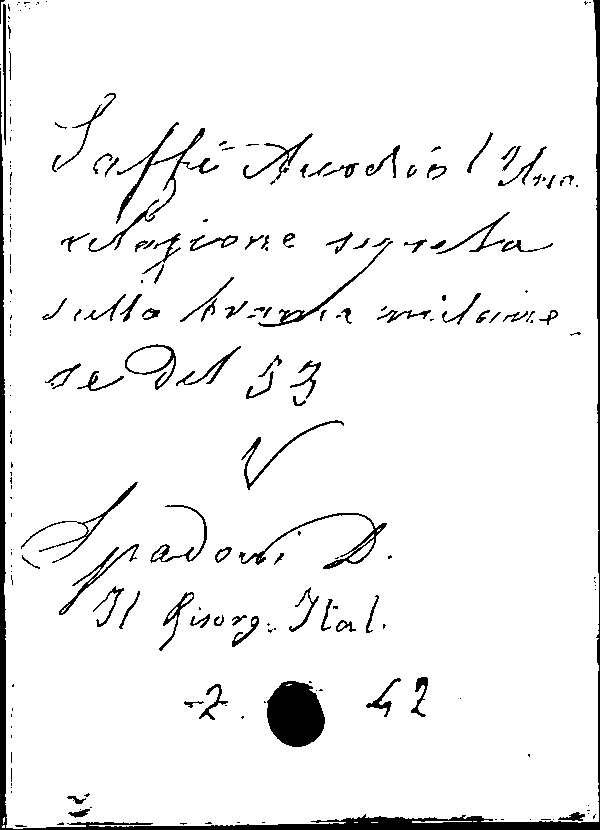 Saffi Aurelio / Una
relazione segreta
sulla trama milane-
se del 53
V
Spadoni D.
Il Risorg. Ital.
2. 42